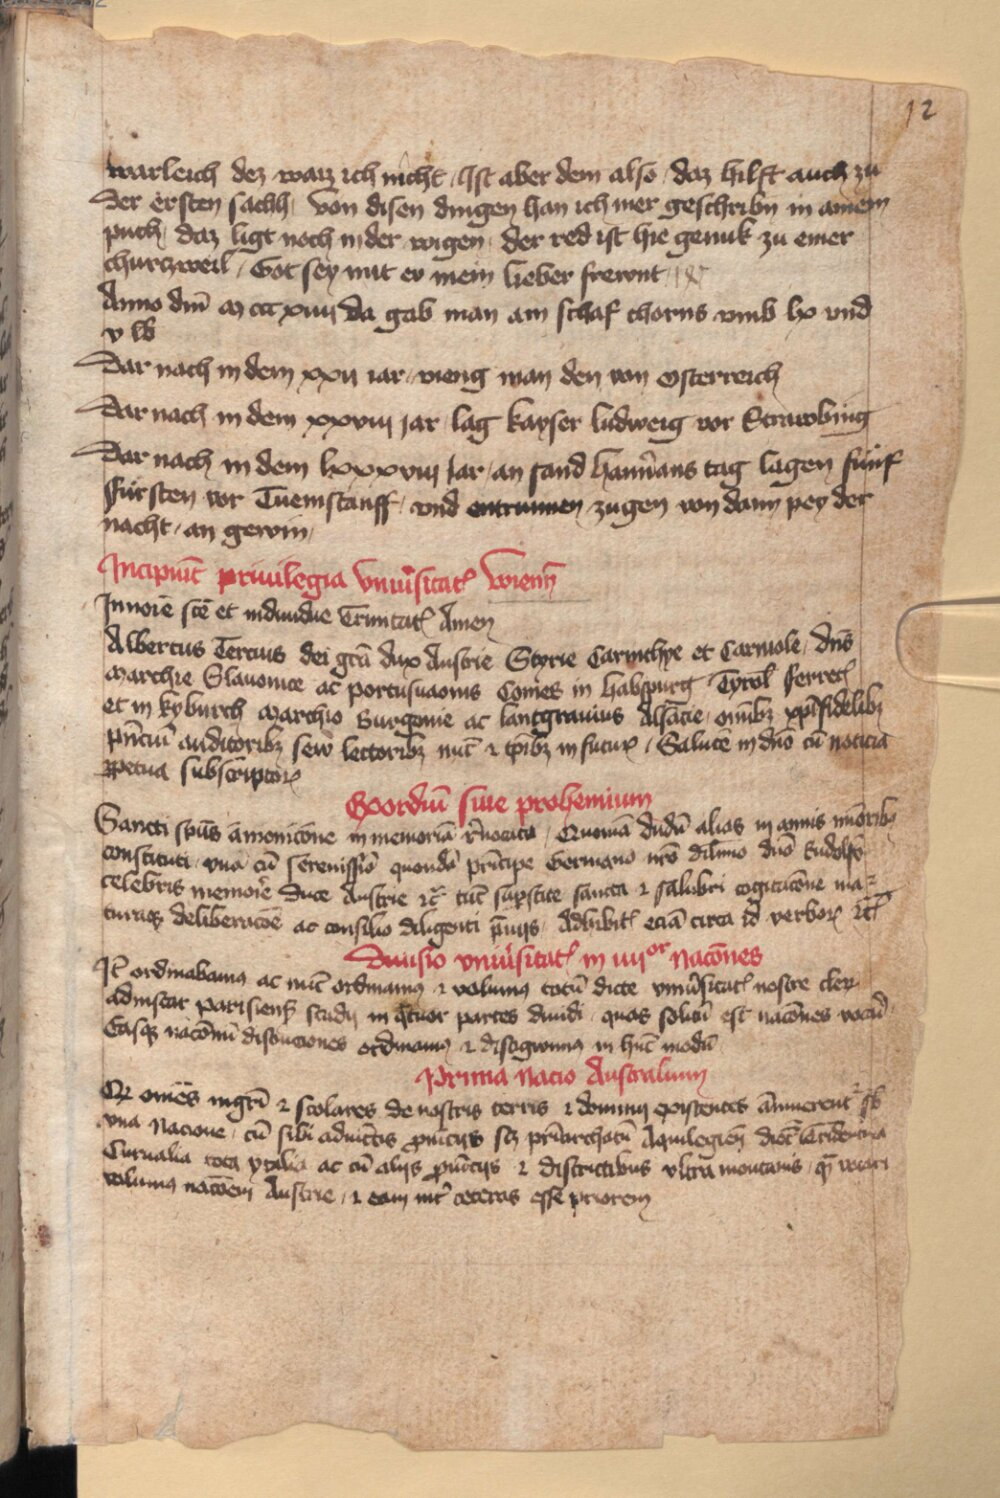 12
warleich dez waiz ich nicht / Ist aber dem also / daz hilft auch zu
Der ersten sachh / von disen dingen han ich mer geschribn in ainem
puch / daz ligt noch in der wigen / der red ist hie genuk zu einer
churczweil / Got sey mit ev mein lieber frewnt
Anno dm̄ M ccc xiiij da gab man am schaf chorns vmb lx vnd
v lb
Dar nach in dem xxij iar / vieng man den von Osterreich
Dar nach in dem xxviij jar / lag kayser ludweig vor Strawbing
Dar nach in dem lxxxviij Jar / an sand haim̄rans tag lagen fünf
fürsten vor Tuemstauff / vnd entrunnen / zugen von dann pey der
nacht / an gewin /
Incipiūt priuilegia vniūsitatꝭ Wienn̄
In noīe scē et indiuidue Trinitatꝭ Amen
Albertus Tercius dei grā dux Austrie Styrie Carinthye et Carniole / dn̄s
Marchie Slauonice ac portusnaonis Comes in habspurg Tyrol̄ ferretꝭ
et in kyburch Marchio Burgonie ac lantgrauius Alsacie / om̄ibꝫ xp̄ifidelibꝫ
pn̄ciū auditoribꝫ sew lectoribꝫ nūc ⁊ tp̄ibꝫ in futurꝭ / Salutē in dn̄o cū noticia
ꝑpetua subscriptorꝝ
Exordiū siue prohemium
Sancti sp̄us āmonicōne in memoriā r̄uocata / Quoniā dudū alias in annis mīoribꝫ
constituti / vna cū serenissīo quondā prīcipe Germano nr̄o dilc̄mo dn̄o Rudolfo
celebris memoīe Duce Austrie ⁊cꝭ tūc suꝑstite sancta ⁊ salubri cogitacōne ma⸗
turaqꝫ deliberacōe ac consilio diligenti p̄uijs / Adhibitꝭ eciā circa id verborꝝ ⁊cꝭ
Diuisio vniūsitatꝭ in iiijor Nacōnes
Itꝭ ordinabamꝰ ac nūc ordinamꝰ ⁊ volumꝰ totū dicte vniūsitatꝭ nostre cler
adinstar parisiens̄ studij in qͣtuor partes diuidi / quas solitū est nacōnes vocar̄
Easqꝫ nacōnū distinctiones ordinamꝰ ⁊ distīgwimꝰ in hūc modū
Prima Nacio Australium
Qꝫ om̄es mgr̄i ⁊ scolares de nostris terris ⁊ dominijs existentes ānumerent̄ sb̄
vna Nacione / cū sibi adiunctis ꝓuīcijs scꝫ pr̄iarchatū Aquilegien̄ dioc̄ Tridentina
Curualia tota ytalia ac cū alijs ꝓuīcijs ⁊ districtibus vltra montanis / qͣ vocari
volumꝰ nacōem Austrie / ⁊ eam int̄ ceteras esse priorem